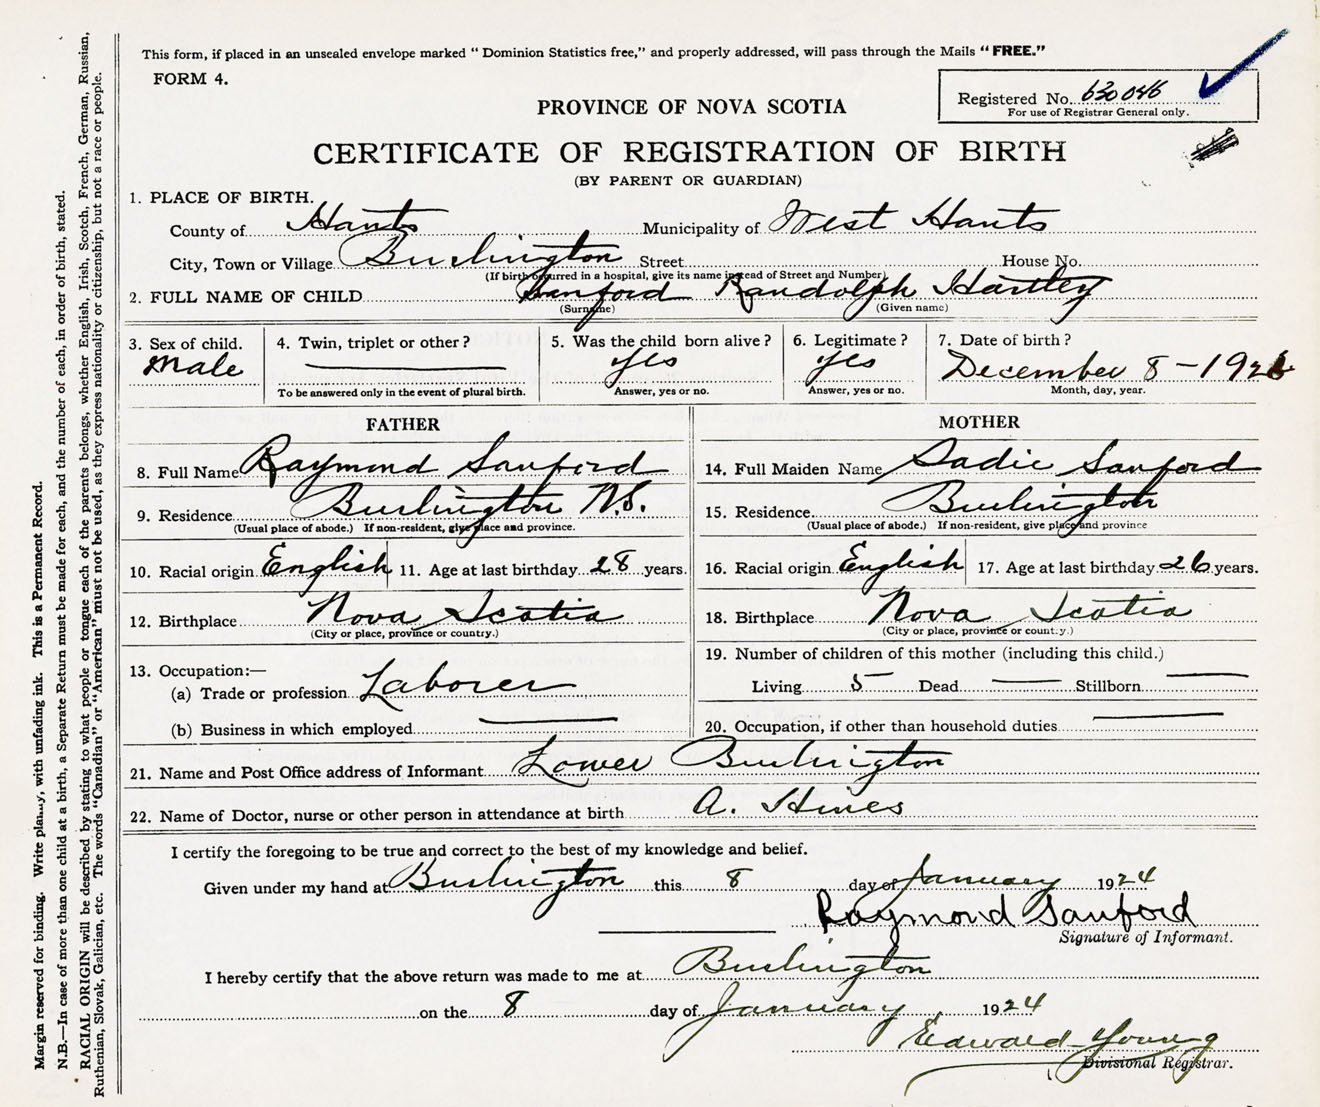 This form, if placed in an unsealed envelope marked "Dominion Statistics free," and properly addressed, will pass through the Mails "FREE."
FORM 4.
Registered No. 630046
For use of Registrar General only.
PROVINCE OF NOVA SCOTIA
CERTIFICATE OF REGISTRATION OF BIRTH
(BY PARENT OR GUARDIAN)
1. PLACE OF BIRTH.
County of Hants Municipality of West Hants
City, Town or Village Burlington Street House No.
(If birth occurred in a hospital, give its name instead of Street and Number)
2. FULL NAME OF CHILD Sanford Randolph Hartley
(Surname) (Given name)
3. Sex of child. 4. Twin, triplet or other? 5. Was the child born alive? 6. Legitimate? 7. Date of birth?
Male Yes Yes December 8 - 192
To be answered only in the event of plural birth. Answer, yes or no. Answer, yes or no. Month, day, year.
FATHER
8. Full Name Raymond Sanford
9. Residence Burlington N.S.
(Usual place of abode.) If non-resident, give place and province.
10. Racial origin English 11. Age at last birthday 28 years.
12. Birthplace Nova Scotia
(City or place, province or country.)
13. Occupation:—
(a) Trade or profession Laborer
(b) Business in which employed
MOTHER
14. Full Maiden Name Sadie Sanford
15. Residence Burlington
(Usual place of abode.) If non-resident, give place and province
16. Racial origin English 17. Age at last birthday 26 years.
18. Birthplace Nova Scotia
(City or place, province or country.)
19. Number of children of this mother (including this child.)
Living 5 Dead — Stillborn —
20. Occupation, if other than household duties —
21. Name and Post Office address of Informant Lower Burlington
22. Name of Doctor, nurse or other person in attendance at birth A. Hines
I certify the foregoing to be true and correct to the best of my knowledge and belief.
Given under my hand at Burlington this 8 day of January 1924
Raymond Sanford
Signature of Informant.
I hereby certify that the above return was made to me at Burlington
on the 8 day of January 1924
Edward Young
Divisional Registrar.
Margin reserved for binding. Write plainly, with unfading ink. This is a Permanent Record.
N.B.—In case of more than one child at a birth, a Separate Return must be made for each, and the number of each, in order of birth, stated.
RACIAL ORIGIN will be described by stating to what people or tongue each of the parents belongs, whether English, Irish, Scotch, French, German, Russian,
Ruthenian, Slovak, Galician, etc. The words "Canadian" or "American" must not be used, as they express nationality or citizenship, but not a race or people.